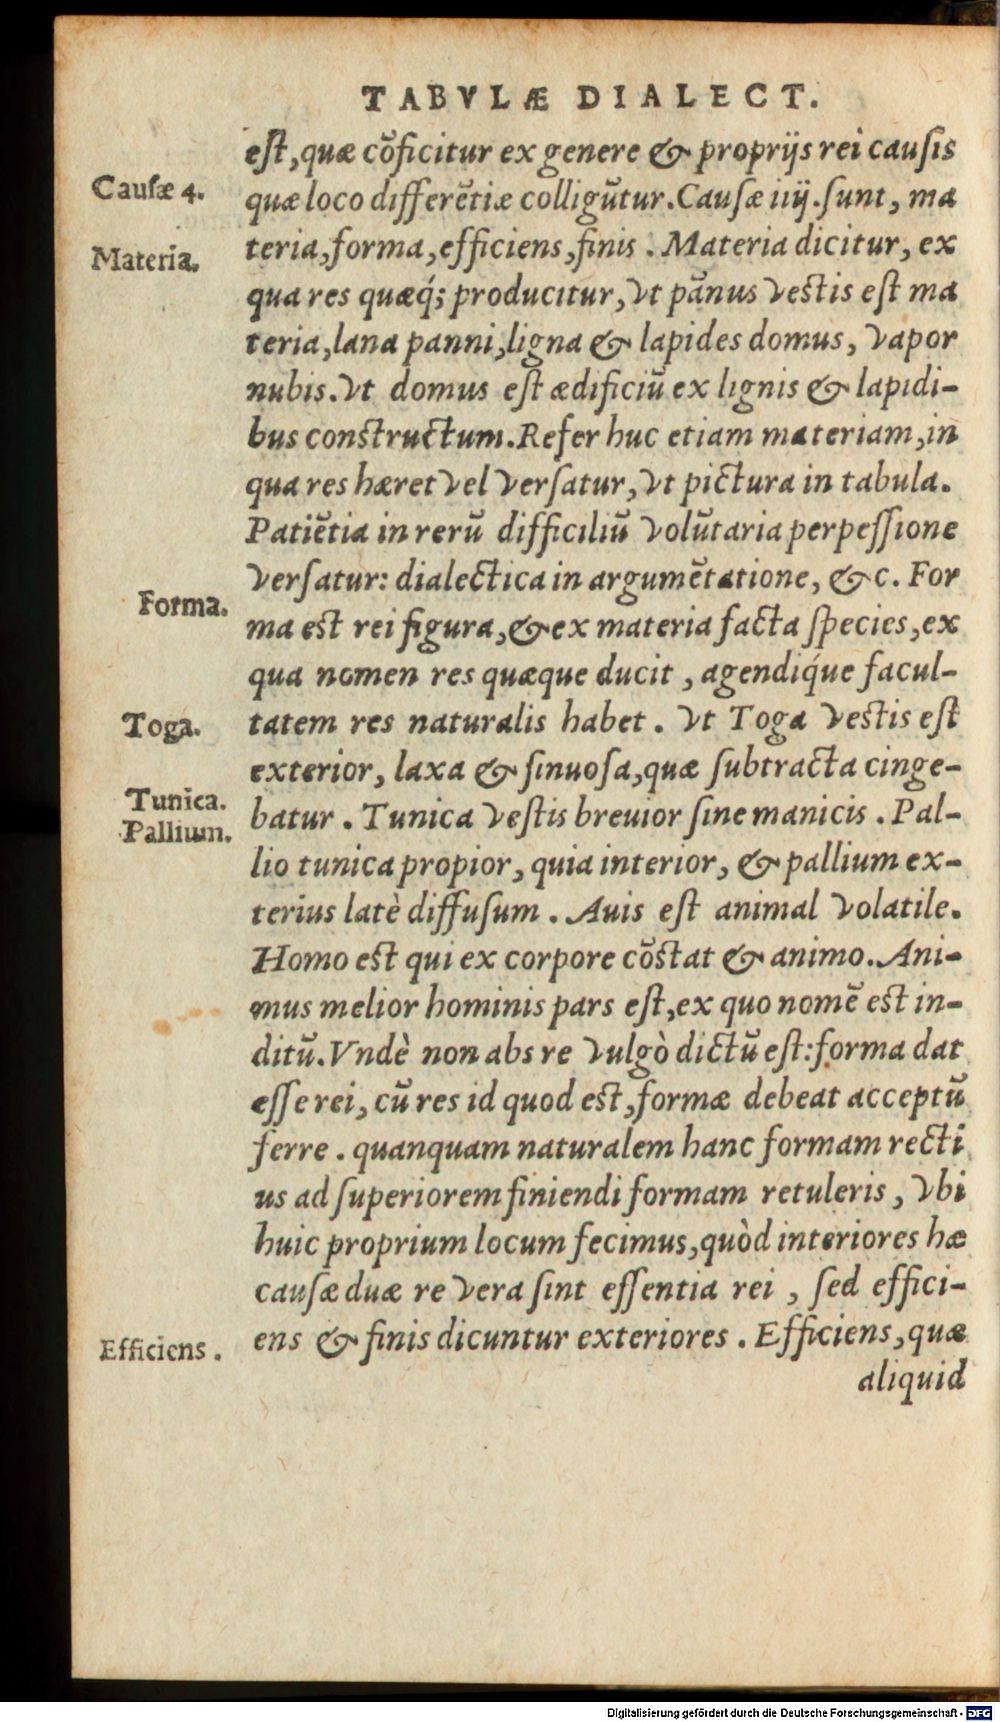 TABVLÆ DIALECT.
est, quæ cōficitur ex genere & proprijs rei causis
Causæ 4.
quæ loco differētiæ colligūtur. Causæ iiij. sunt, ma
teria, forma, efficiens, finis. Materia dicitur, ex
Materia.
qua res quæq́; producitur, vt pānus vestis est ma
teria, lana panni, ligna & lapides domus, vapor
nubis. vt domus est ædificiū ex lignis & lapidi-
bus constructum. Refer huc etiam materiam, in
qua res hæret vel versatur, vt pictura in tabula.
Patiētia in rerū difficiliū volūtaria perpessione
versatur: dialectica in argumētatione, &c. For
Forma.
ma est rei figura, & ex materia facta species, ex
qua nomen res quæque ducit, agendiq́ue facul-
tatem res naturalis habet. vt Toga vestis est
Toga.
exterior, laxa & sinuosa, quæ subtracta cinge-
Tunica.
batur. Tunica vestis breuior sine manicis. Pal-
Pallium.
lio tunica propior, quia interior, & pallium ex-
terius latè diffusum. Auis est animal volatile.
Homo est qui ex corpore cōstat & animo. Ani-
mus melior hominis pars est, ex quo nomē est in-
ditū. Vndè non abs re vulgò dictū est: forma dat
esse rei, cū res id quod est, formæ debeat acceptū
ferre. quanquam naturalem hanc formam recti
us ad superiorem finiendi formam retuleris, vbi
huic proprium locum fecimus, quòd interiores hæ
causæ duæ re vera sint essentia rei, sed effici-
ens & finis dicuntur exteriores. Efficiens, quæ
Efficiens.
aliquid
Digitalisierung gefördert durch die Deutsche Forschungsgemeinschaft - DFG